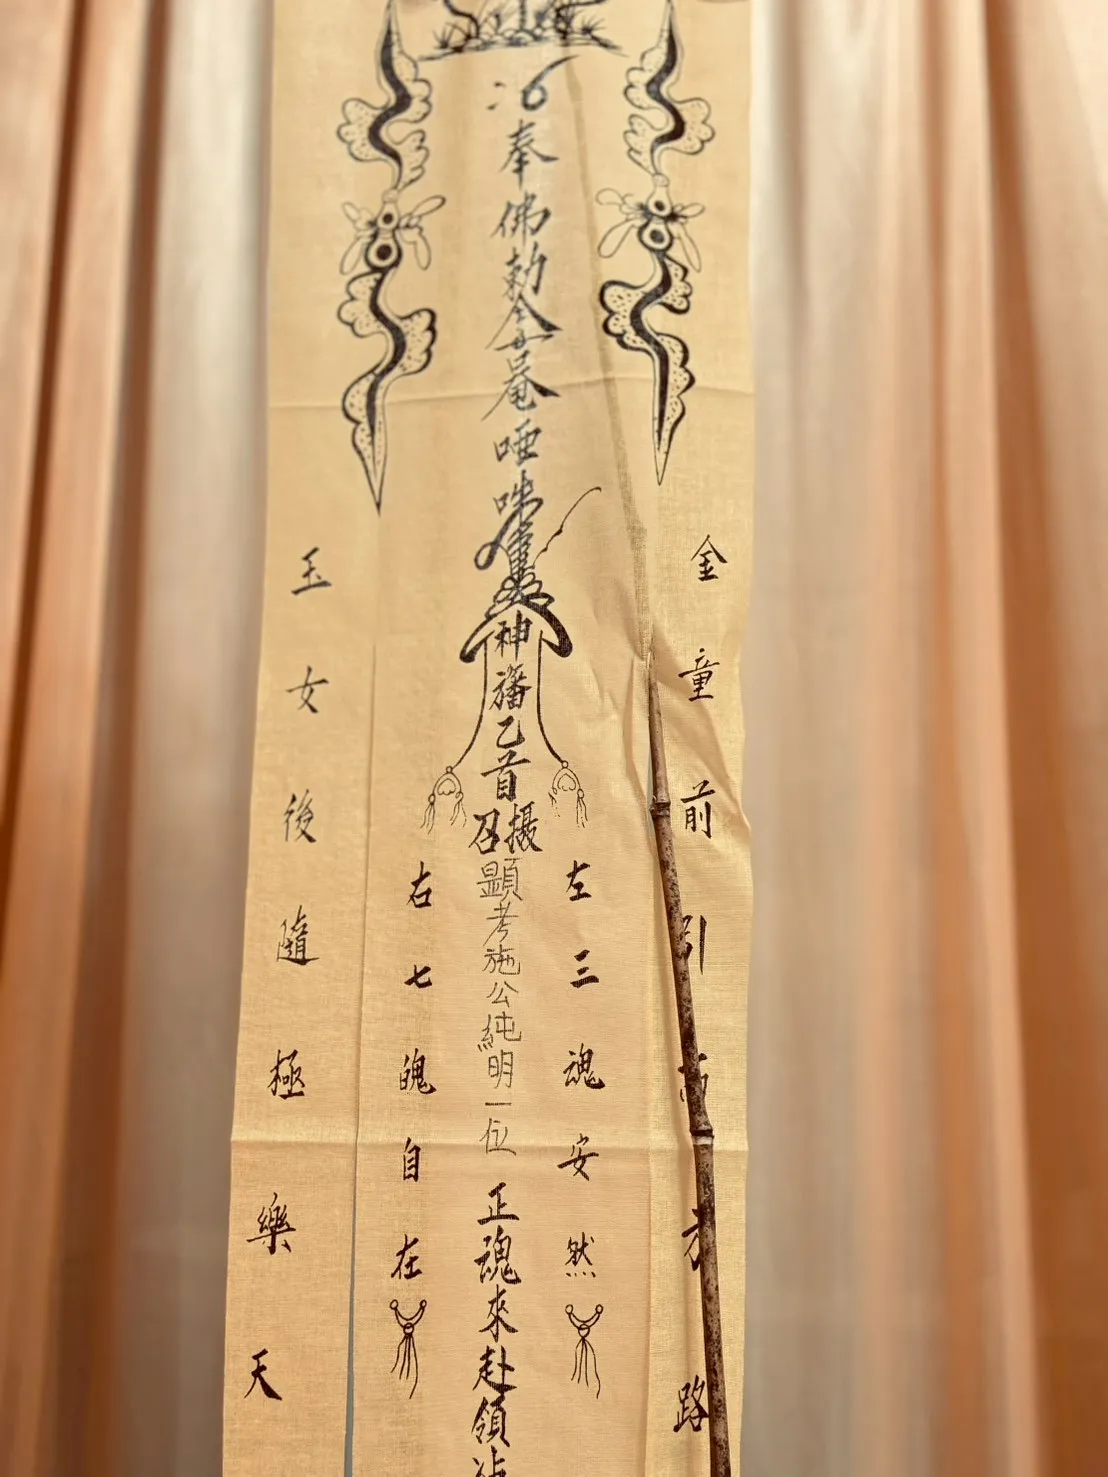 金童前引西方路
左三魂安然
奉佛勅令唵啞吽
神旛乙首
攝召
顯考施公純明一位
正魂來赴領沾
右七魄自在
玉女後隨極樂天